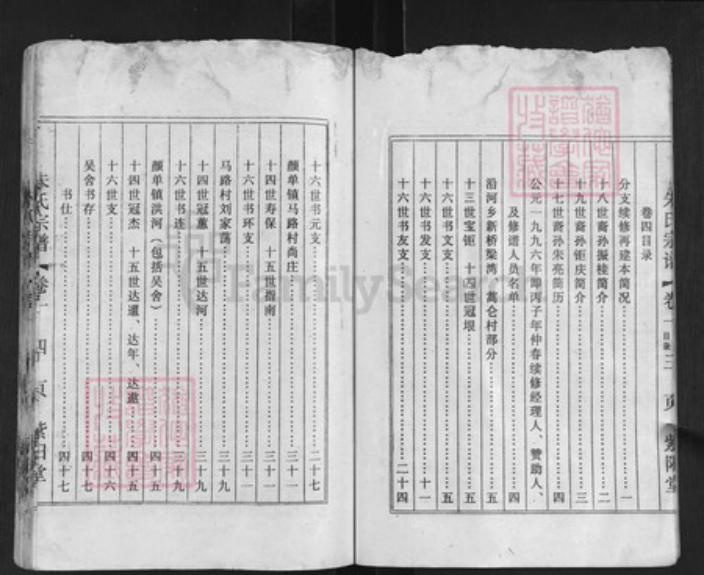 卷四目录
分支续修再建本简况……一
十八世裔孙振桂简介……二
十九世裔孙钜庆简介……三
十七世裔孙朱亮简历……四
公元一九九六年即丙子年仲春续修经理人、赞助人、
及修谱人员名单……四
沿河乡新桥梁湾 蒿仑村部分……五
十三世宝钜 十四世冠堒……五
十六世书文支……五
十六世书发支……十一
十六世书友支……二十四
十六世书元支……二十七
颜单镇马路村尚庄……三十一
十四世寿保 十五世指南……三十一
十六世书环支……三十一
马路村刘家荡……三十九
十四世冠薰 十五世达河……三十九
十六世书连……三十九
颜单镇洪河（包括吴舍）……四十五
十四世冠杰 十五世达暹、达年、达遨……四十五
十六世支……四十六
吴舍书存……四十七
书仕……四十七
朱氏宗谱 卷一 四页 紫阳堂
朱氏宗谱 卷一 目录 三页 紫阳堂
FamilySearch